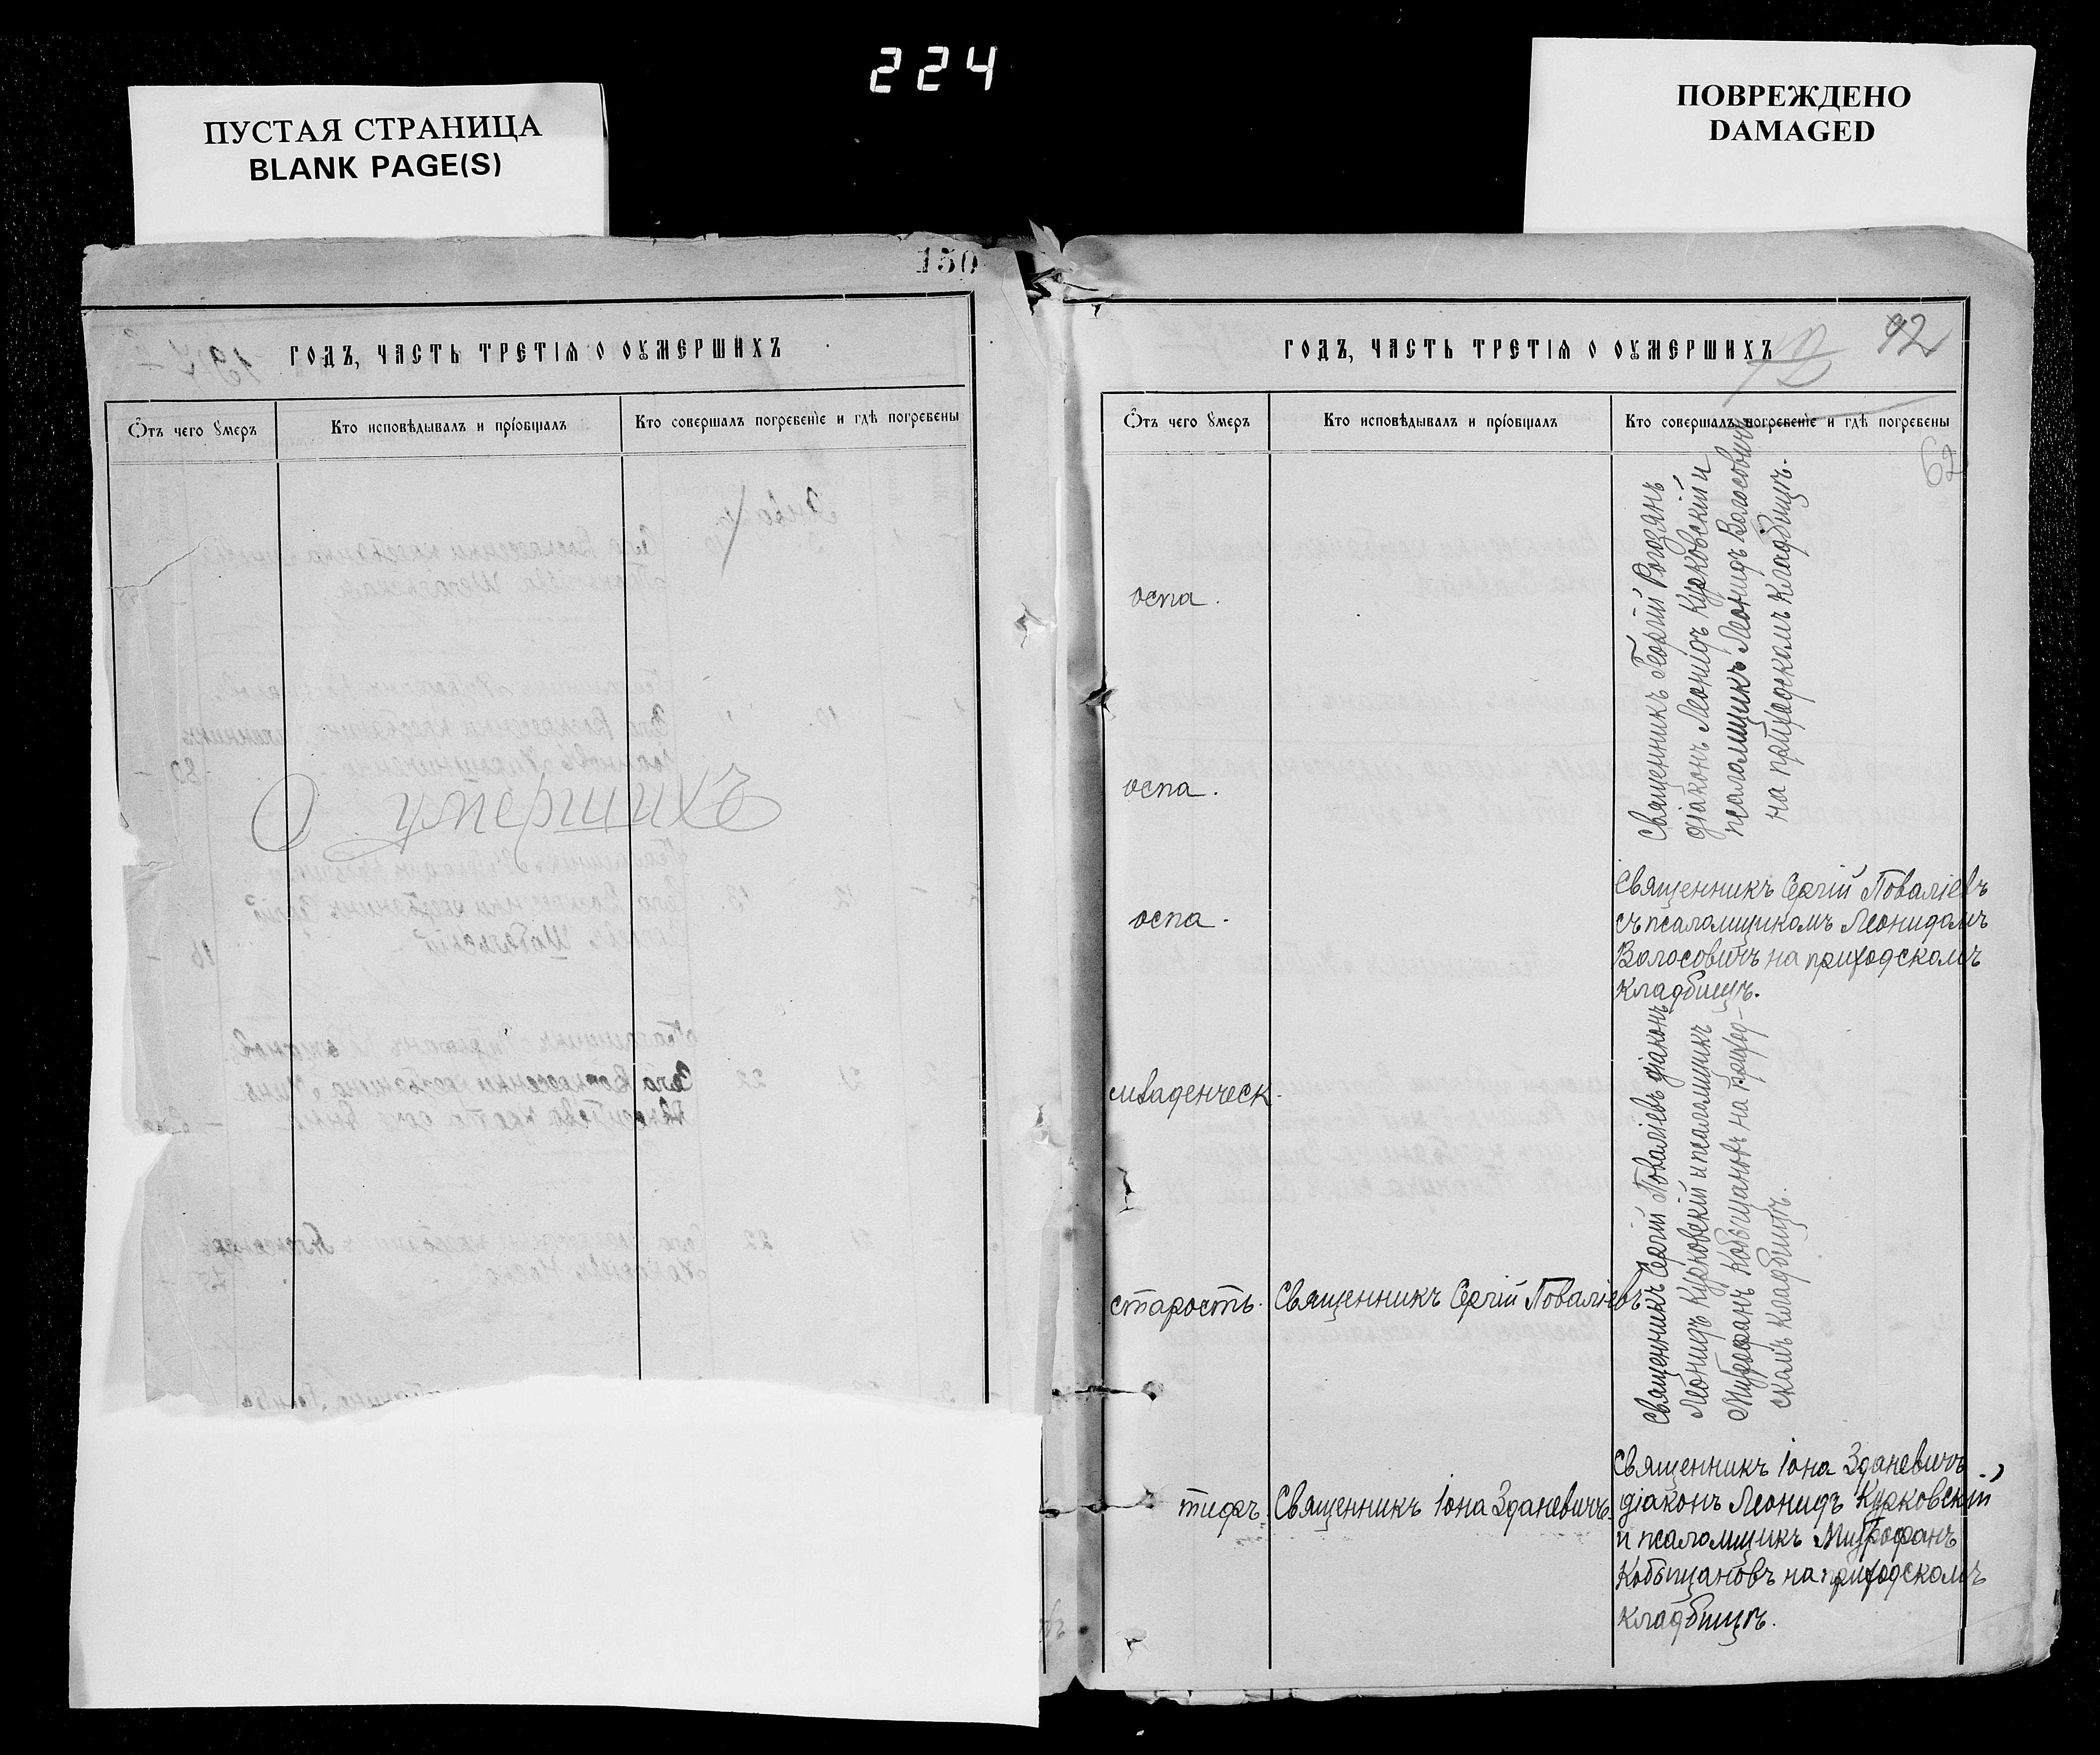 224
ПУСТАЯ СТРАНИЦА
BLANK PAGE(S)
ПОВРЕЖДЕНО
DAMAGED
150
ГОДЪ, ЧАСТЬ ТРЕТІѦ О ОУМЕРШИХЪ
Ѿтъ чего ѹмеръ
Кто исповѣдывалъ и пріобщалъ
Кто совершалъ погребеніе и гдѣ погребены
О умершихъ
92
ГОДЪ, ЧАСТЬ ТРЕТІѦ О ОУМЕРШИХЪ
Ѿтъ чего ѹмеръ
Кто исповѣдывалъ и пріобщалъ
Кто совершалъ погребеніе и гдѣ погребены
62
оспа.
Священникъ Георгій Рогозянъ
діаконъ Леонідъ Курковскій и
псаломщикъ Леонидъ Волосовичъ
на приходскомъ кладбищѣ.
оспа.
оспа.
Священникъ Сергій Поваліевъ
съ псаломщикомъ Леонидомъ
Волосовичъ на приходскомъ
кладбищѣ.
младенческ.
Священникъ Сергій Поваліевъ діаконъ
Леонидъ Курковскій и псаломщикъ
Митрофанъ Кобыщановъ на приход-
скомъ кладбищѣ.
старость.
Священникъ Сергій Поваліевъ
тифъ.
Священникъ Іона Зданевичъ.
Священникъ Іона Зданевичъ,
діаконъ Леонидъ Курковскій
и псаломщикъ Митрофанъ
Кобыщановъ на приходскомъ
кладбищѣ.